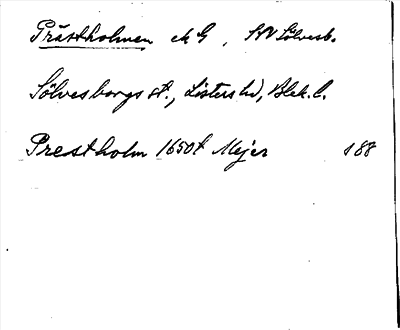 Prästholmen ä G, SV Sölvesb.
Sölvesborgs st., Listers hd, Blek. l.
Prestholm 1650t Mejer 188